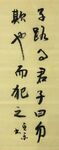 子路問君子曰勿
欺也而犯之